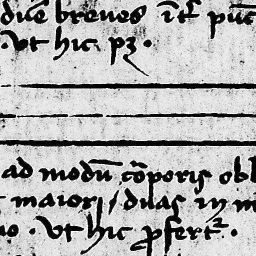 due breues it͛ pūc
. Vt hic pꝫ .
ad modū cō̄poris obl
maiori / duas in m
o . Vt hic ꝓfert᷑ .